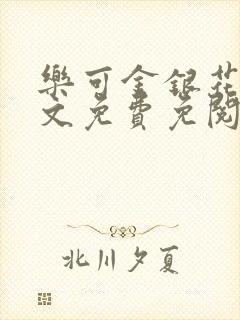 樂可金銀花
文免費免閱
北川夕夏